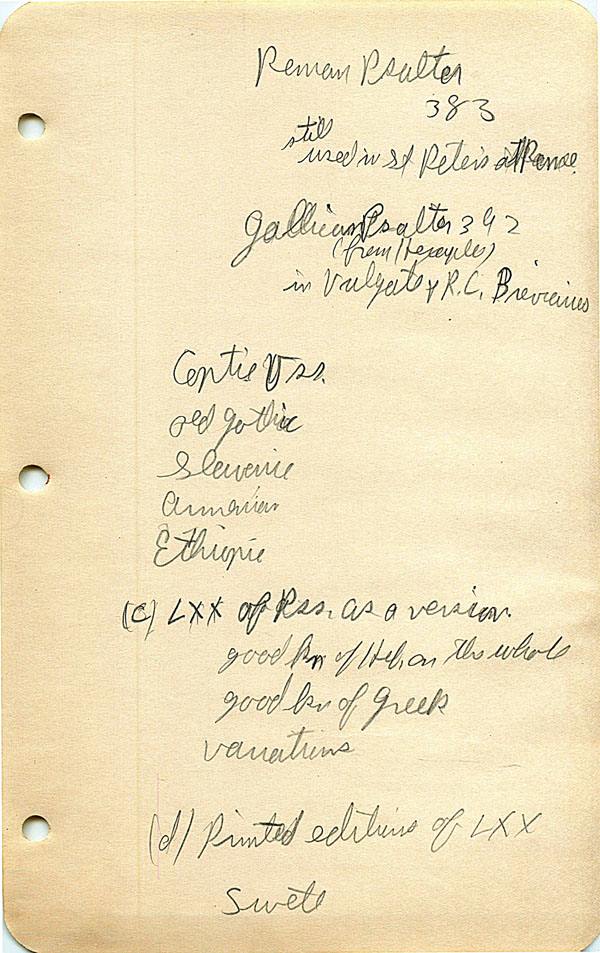 Roman Psalter
383
still
used in St Peter's at Rome.
Gallican Psalter 392
(from Hexapla)
in Vulgate & R.C. Breviaries
Coptic Vss.
old Gothic
Slavonic
Armenian
Ethiopic
(c) LXX of Pss. as a version.
good kn of Heb. on the whole
good kn of Greek
variations
(d) Printed editions of LXX
Swete